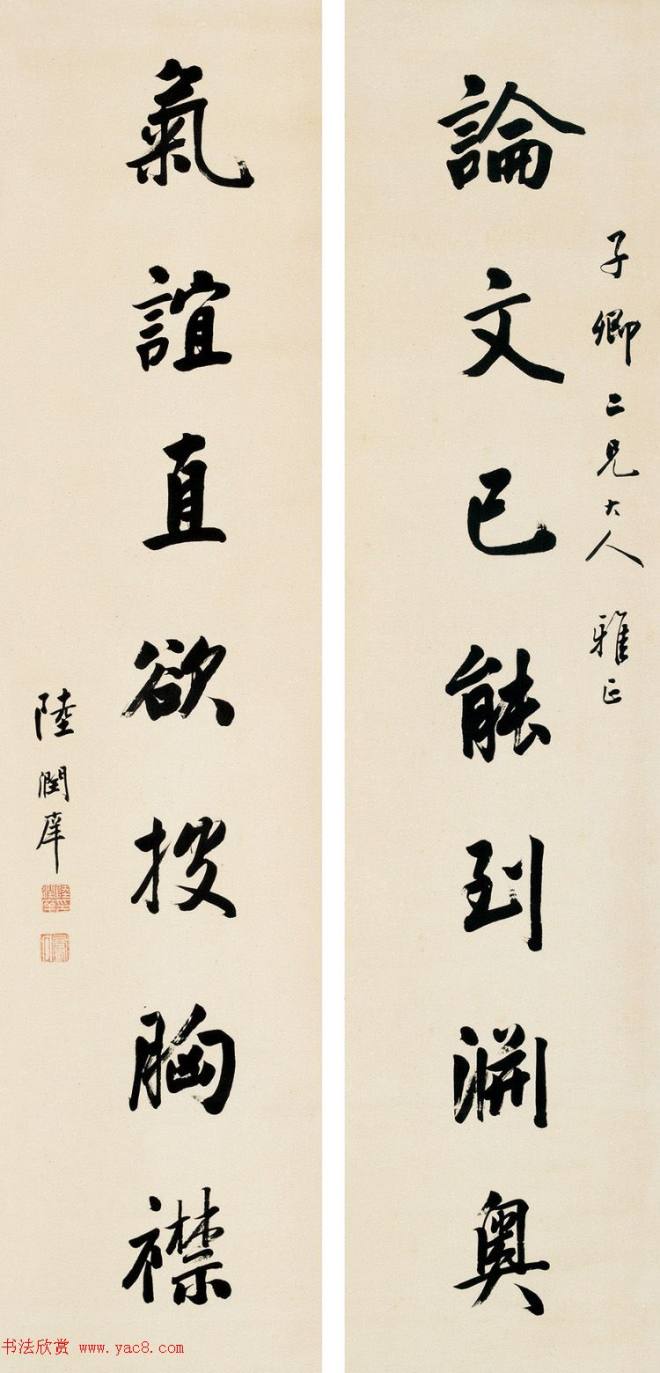 論文已能到淵奧
子卿二兄大人 雅正
氣誼直欲披胸襟
陸潤庠
书法欣赏 www.yac8.com